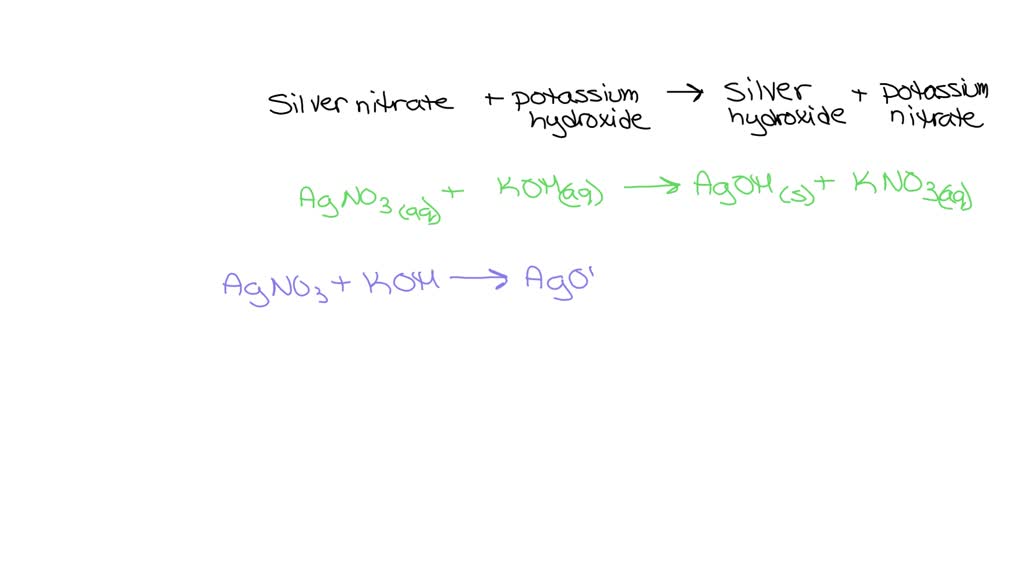 Silver nitrate + potassium hydroxide → Silver hydroxide + potassium nitrate
AgNO3(aq) + KOH(aq) → AgOH(s) + KNO3(aq)
AgNO3 + KOH → AgO'